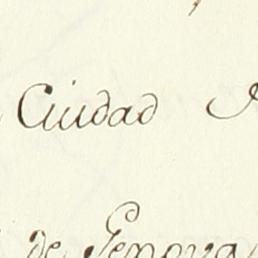 Ciudad
de Genova